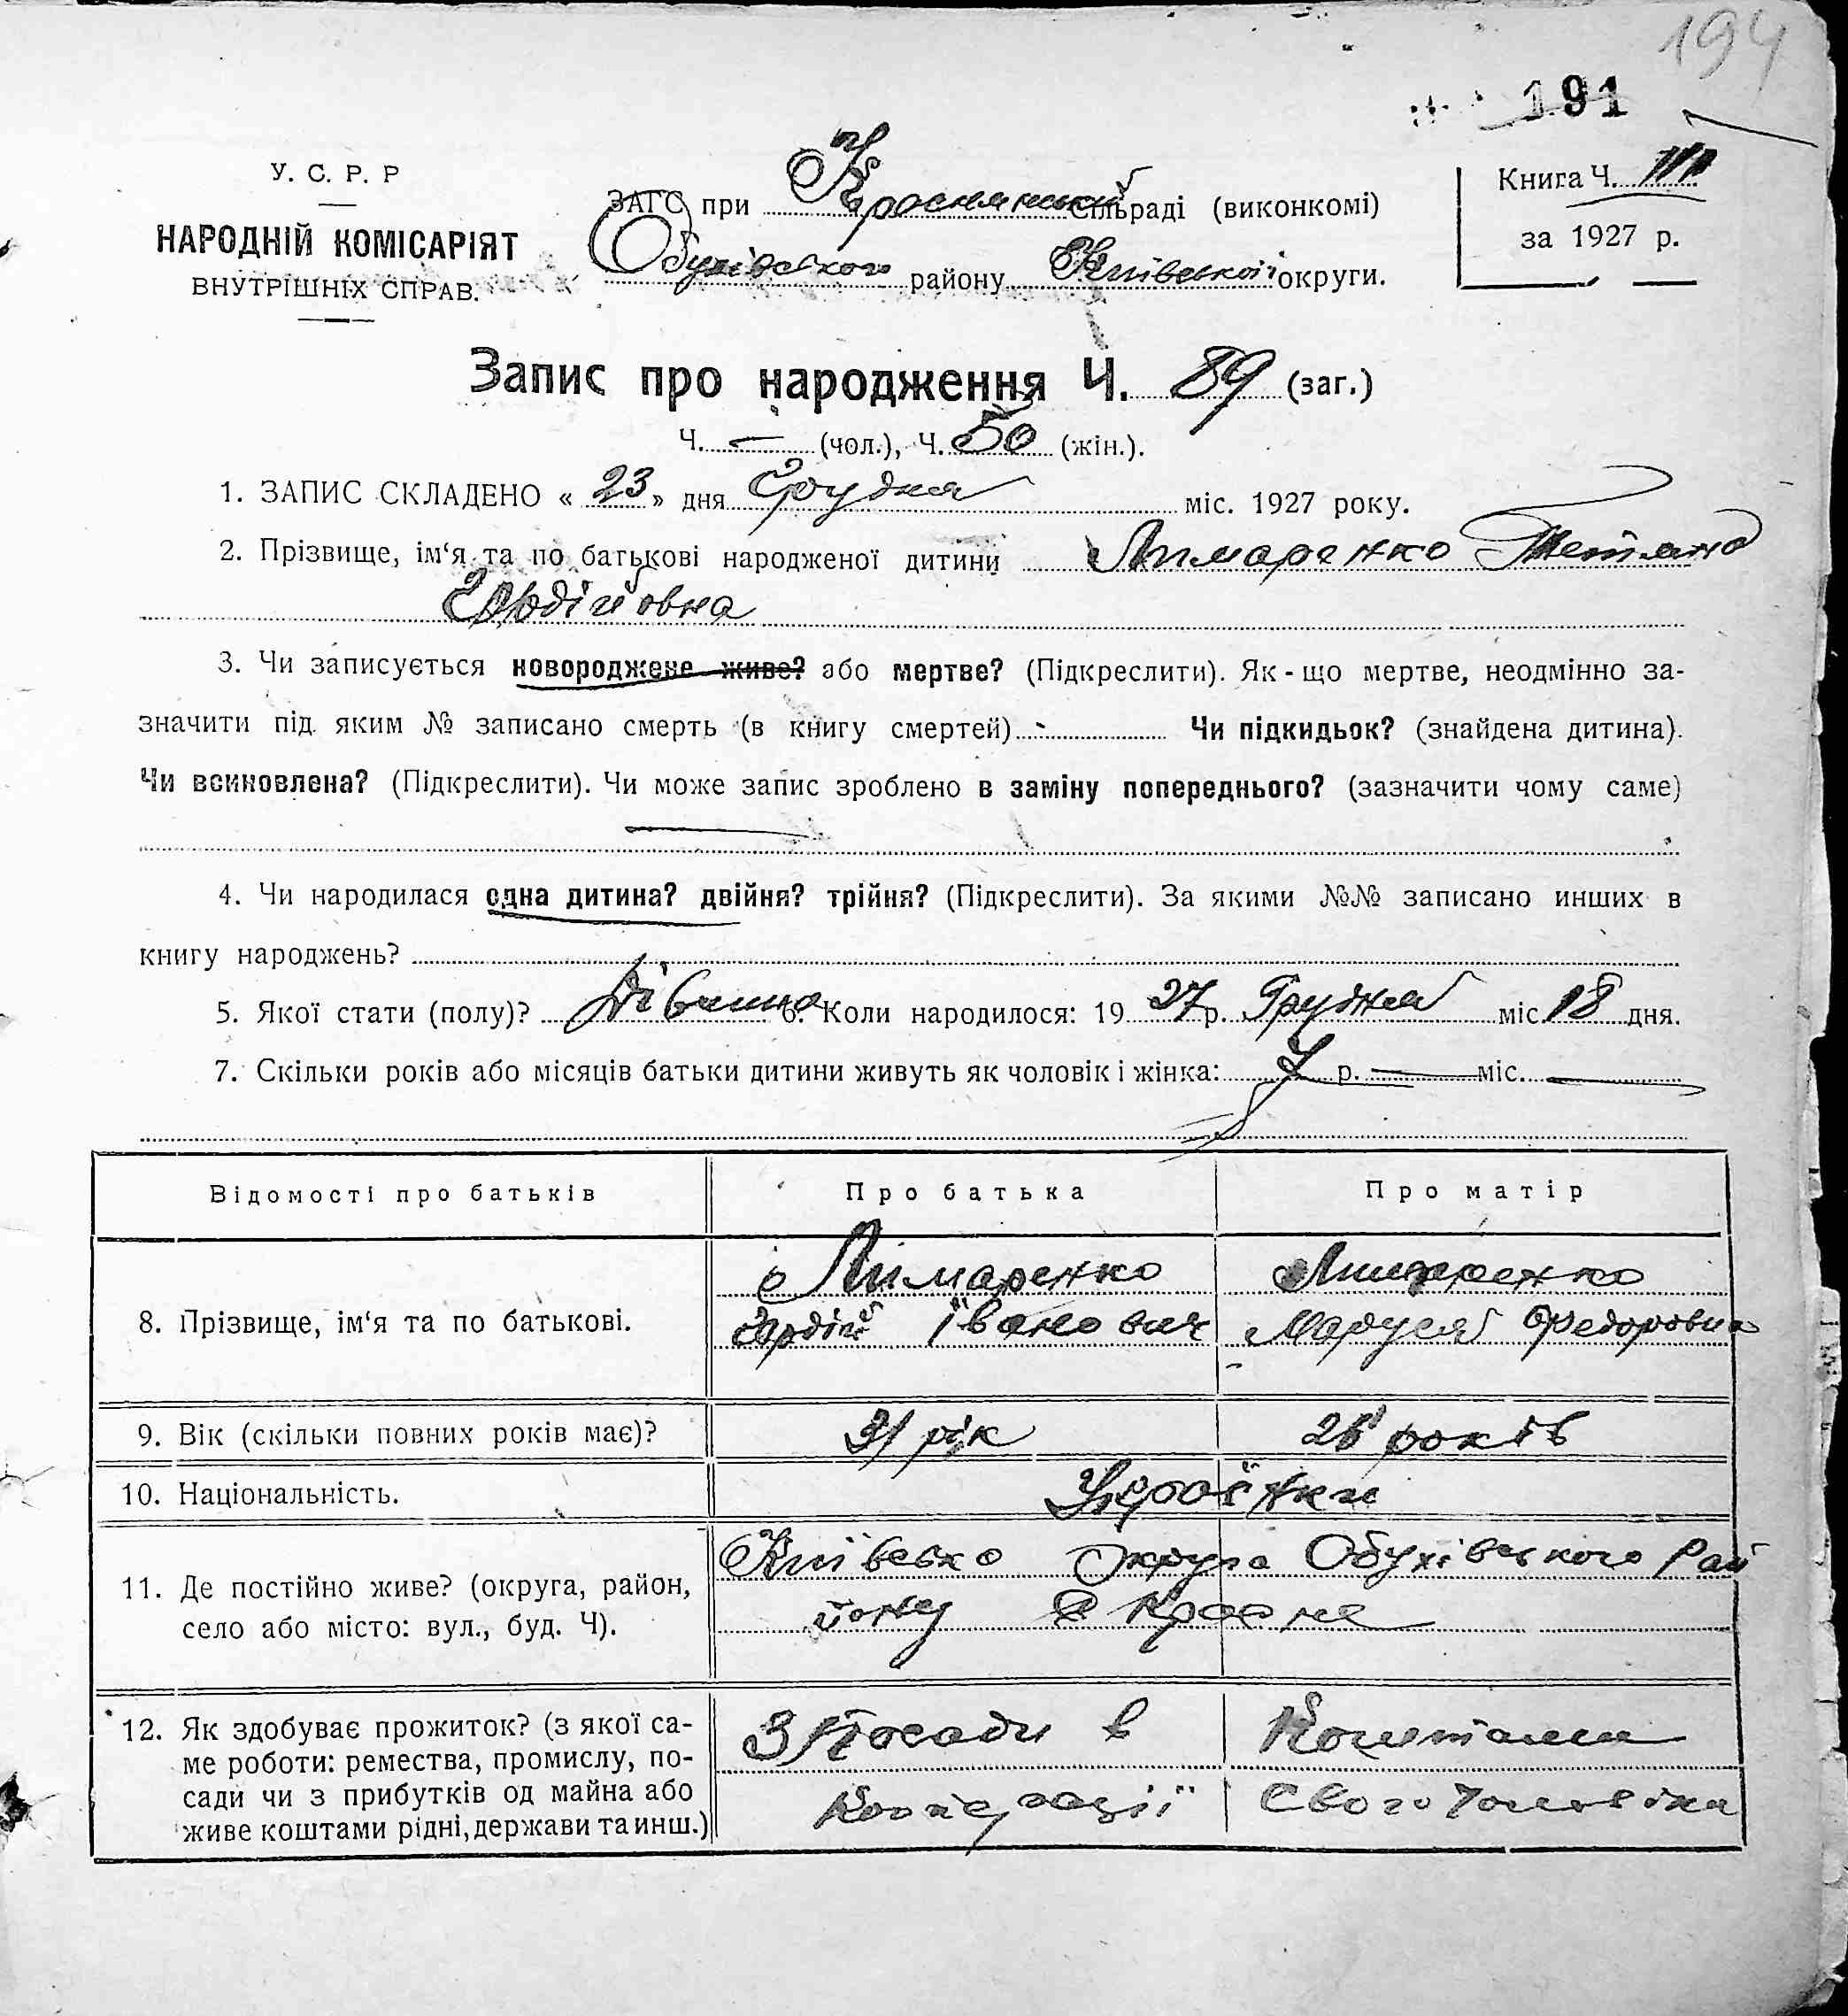 194
191
У. С. Р. Р
НАРОДНІЙ КОМІСАРІЯТ
ВНУТРІШНІХ СПРАВ.
ЗАГС при Краснянській сільраді (виконкомі)
Обухівського району Київської округи.
Книга Ч. III
за 1927 р.
Запис про народження Ч. 89 (заг.)
Ч. — (чол.), Ч. 50 (жін.).
1. ЗАПИС СКЛАДЕНО « 23 » дня Грудня міс. 1927 року.
2. Прізвище, ім‘я та по батькові народженої дитини Лимаренко Тетяна
Гордійовна
3. Чи записується новороджене живе? або мертве? (Підкреслити). Як-що мертве, неодмінно за-
значити під яким № записано смерть (в книгу смертей) - Чи підкидьок? (знайдена дитина).
Чи всиновлена? (Підкреслити). Чи може запис зроблено в заміну попереднього? (зазначити чому саме)
—
4. Чи народилася одна дитина? двійня? трійня? (Підкреслити). За якими №№ записано инших в
книгу народжень?
5. Якої стати (полу)? Дівчина 6. Коли народилося: 19 27 р. Грудня міс. 18 дня.
7. Скільки років або місяців батьки дитини живуть як чоловік і жінка: 7 р. — міс. —
Відомості про батьків Про батька Про матір
Лимаренко Лимаренко
8. Прізвище, ім‘я та по батькові. Гордій Іванович Маруся Федоровна
9. Вік (скільки повних років має)? 31 рік 26 років
10. Національність. Українки
Київсько Округа Обухівського Рай
11. Де постійно живе? (округа, район,
село або місто: вул., буд. Ч). йону с Красне
12. Як здобуває прожиток? (з якої са- З Посади в Коштами
ме роботи: ремества, промислу, по-
сади чи з прибутків од майна або Кооперації Свого Чоловіка
живе коштами рідні, держави та инш.)